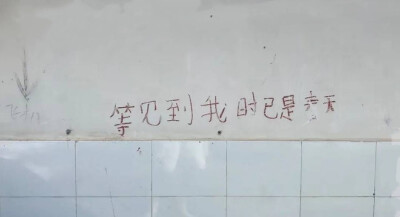 等见到我时已是天